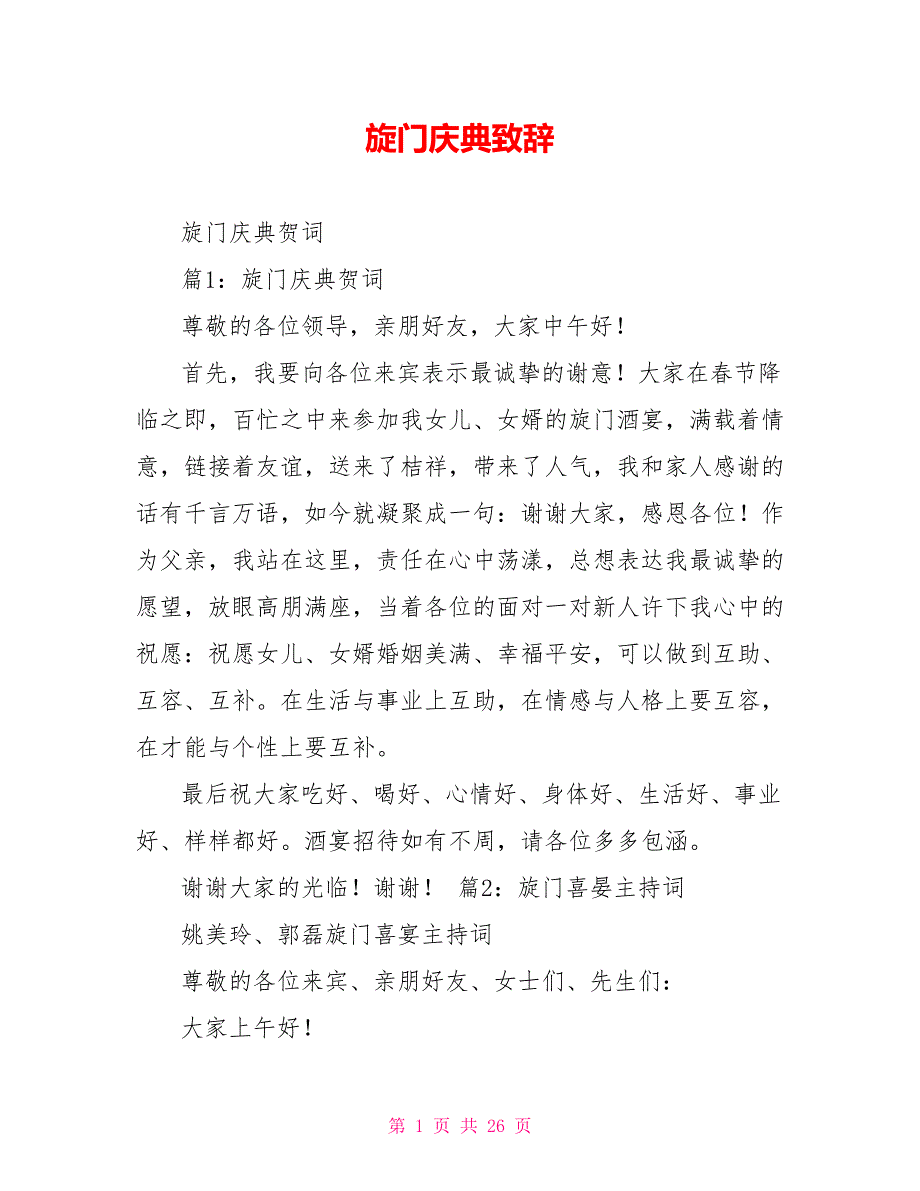 旋门庆典致辞
旋门庆典贺词
篇1：旋门庆典贺词
尊敬的各位领导，亲朋好友，大家中午好！
首先，我要向各位来宾表示最诚挚的谢意！大家在春节降
临之即，百忙之中来参加我女儿、女婿的旋门酒宴，满载着情
意，链接着友谊，送来了桔祥，带来了人气，我和家人感谢的
话有千言万语，如今就凝聚成一句：谢谢大家，感恩各位！作
为父亲，我站在这里，责任在心中荡漾，总想表达我最诚挚的
愿望，放眼高朋满座，当着各位的面对一对新人许下我心中的
祝愿：祝愿女儿、女婿婚姻美满、幸福平安，可以做到互助、
互容、互补。在生活与事业上互助，在情感与人格上要互容，
在才能与个性上要互补。
最后祝大家吃好、喝好、心情好、身体好、生活好、事业
好、样样都好。酒宴招待如有不周，请各位多多包涵。
谢谢大家的光临！谢谢！ 篇2：旋门喜晏主持词
姚美玲、郭磊旋门喜宴主持词
尊敬的各位来宾、亲朋好友、女士们、先生们：
大家上午好！
第 1 页 共 26 页